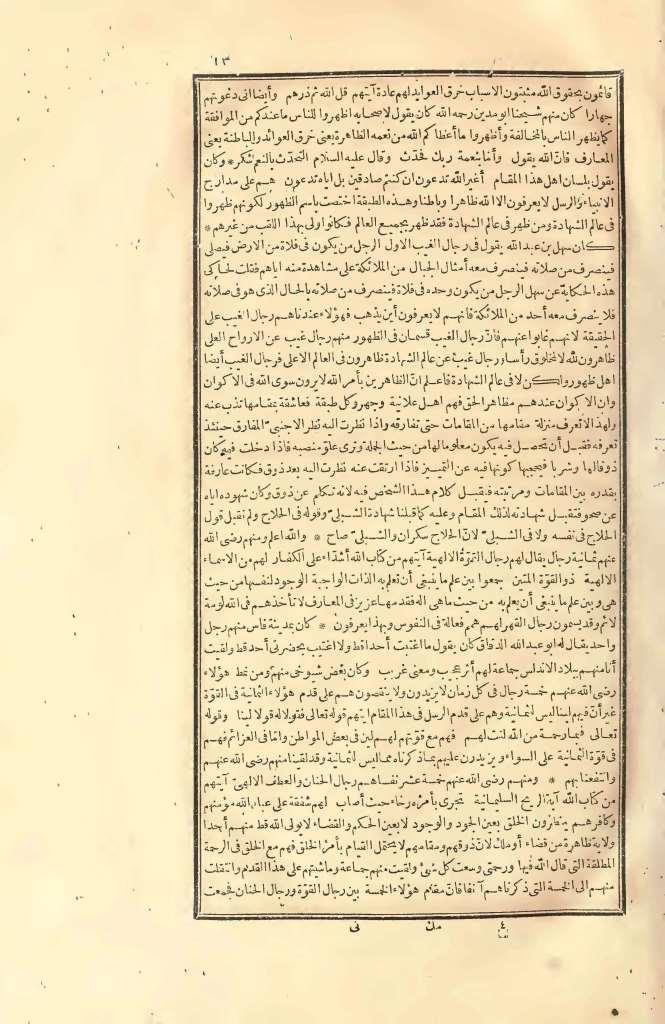 ١٣
قائمون بحقوق الله مثبتون الاسباب خرق العوايد لهم عادة آيتهم قل الله ثم ذرهم وأيضا انى دعوتهم
جهارا كان منهم شيخنا ابو مدين رحمه الله كان يقول لاصحابه اظهروا للناس ما عندكم من الموافقة
كما يظهر الناس بالمخالفة وأظهروا ما أعطاكم الله من نعمه الظاهرة يعنى خرق العوائد والباطنة يعنى
المعارف فان الله يقول وأما بنعمة ربك فحدّث وقال عليه السلام التحدّث بالنعم شكر * وكان
يقول بلسان اهل هذا المقام أغير الله تدعون ان كنتم صادقين بل اياه تدعون هم على مدارج
الانبياء والرسل لا يعرفون الا الله ظاهرا وباطنا وهذه الطبقة اختصت باسم الظهور لكونهم ظهروا
فى عالم الشهادة ومن ظهر فى عالم الشهادة فقد ظهر بجميع العالم فكانوا اولى بهذا اللقب من غيرهم *
كان سهل بن عبد الله يقول فى رجال الغيب الاول الرجل من يكون فى فلاة من الارض فيصلى
فينصرف من صلاته فينصرف معه أمثال الجبال من الملائكة على مشاهدة منه اياهم فقلت لحاكى
هذه الحكاية عن سهل الرجل من يكون وحده فى فلاة فينصرف من صلاته بالحال الذى هو فى صلاته
فلا ينصرف معه أحد من الملائكة فانهم لا يعرفون أين يذهب فهؤلاء عندنا هم رجال الغيب على
الحقيقة لانهم غابوا عنهم فان رجال الغيب قسمان فى الظهور منهم رجال غيب عن الارواح العلى
ظاهرون لله لا لمخلوق رأسا ورجال غيب عن عالم الشهادة ظاهرون فى العالم الاعلى فرجال الغيب أيضا
اهل ظهور ولكن لا فى عالم الشهادة فاعلم انّ الظاهرين بأمر الله لا يرون سوى الله فى الاكوان
وان الاكوان عندهم مظاهر الحق فهم اهل علانية وجهر وكل طبقة فعاشقة بمقامها تذب عنه
ولهذا لا تعرف منزلة مقامها من المقامات حتى تفارقه واذا نظرت اليه نظر الاجنبىّ المفارق حينئذ
تعرفه فقبل أن تحصل فيه يكون معلوما لها من حيث الجملة وترى علوّ منصبه فاذا دخلت فيه كان
ذوقا لها وشربا فيحجبها كونها فيه عن التمييز فاذا ارتقت عنه نظرت اليه بعد ذوق فكانت عارفة
بقدره بين المقامات ومرتبته فيقبل كلام هذا الشخص فيه لانه تكلم عن ذوق وكان شهوده اياه
عن صحو فتقبل شهادته لذلك المقام وعليه كما قبلنا شهادة الشبلىّ وقوله فى الحلاج ولم نقبل قول
الحلاج فى نفسه ولا فى الشبلىّ لانّ الحلاج سكران والشبلىّ صاح * والله اعلم ومنهم رضى الله
عنهم ثمانية رجال يقال لهم رجال القوّة الالهية آيتهم من كتاب الله أشدّاء على الكفار لهم من الاسماء
الالهية ذو القوّة المتين جمعوا بين علم ما ينبغى أن تعلم به الذات الواجبة الوجود لنفسها من حيث
هى وبين علم ما ينبغى أن يعلم به من حيث ما هى اله فقدمها عزيز فى المعارف لا تأخذهم فى الله لومة
لائم وقد يسمون رجال القهر لهم همم فعالة فى النفوس وبهذا يعرفون * كان بمدينة فاس منهم رجل
واحد يقال له ابو عبد الله الدقاق كان يقول ما اغتبت أحدا قط ولا اغتيب بحضرتى أحد قط ولقيت
أنا منهم ببلاد الاندلس جماعة لهم أثر عجيب ومعنى غريب وكان بعض شيوخى منهم ومن نمط هؤلاء
رضى الله عنهم خمسة رجال فى كل زمان لا يزيدون ولا ينقصون هم على قدم هؤلاء الثمانية فى القوّة
غير أنّ فيهم لينا ليس لثمانية وهم على قدم الرسل فى هذا المقام آيتهم قوله تعالى فقولا له قولا لينا وقوله
تعالى فبما رحمة من الله لنت لهم فهم مع قوّتهم لهم لين فى بعض المواطن وأما فى العزائم فهم
فى قوّة الثمانية على السواء ويزيدون عليهم بما ذكرناه مما ليس لثمانية وقد لقينا منهم رضى الله عنهم
وانتفعنا بهم * ومنهم رضى الله عنهم خمسة عشر نفسا هم رجال الحنان والعطف الالهىّ آيتهم
من كتاب الله آية الريح السليمانية تجرى بأمره رخاء حيث أصاب لهم شفقة على عباد الله مؤمنهم
وكافرهم ينظرون الخلق بعين الجود والوجود لا بعين الحكم والقضاء لا يولى الله قط منهم أحدا
ولاية ظاهرة من قضاء أو ملك لانّ ذوقهم ومقامهم لا يحتمل القيام بأمر الخلق فهم مع الخلق فى الرحمة
المطلقة التى قال الله فيها ورحمتى وسعت كل شىء ولقيت منهم جماعة وماشيتهم على هذا القدم وانتقلت
منهم الى الخمسة التى ذكرناهم آنفا فانّ مقام هؤلاء الخمسة بين رجال القوّة ورجال الحنان فجمعت
٤ مك نى